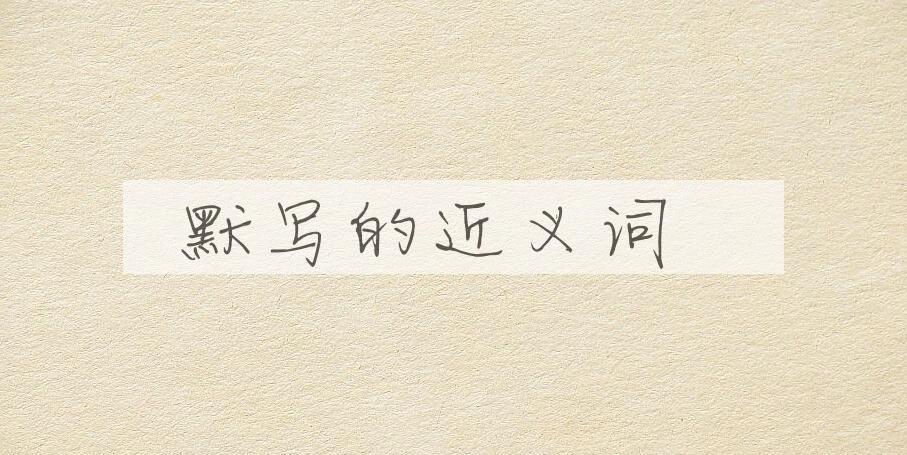 默写的近义词